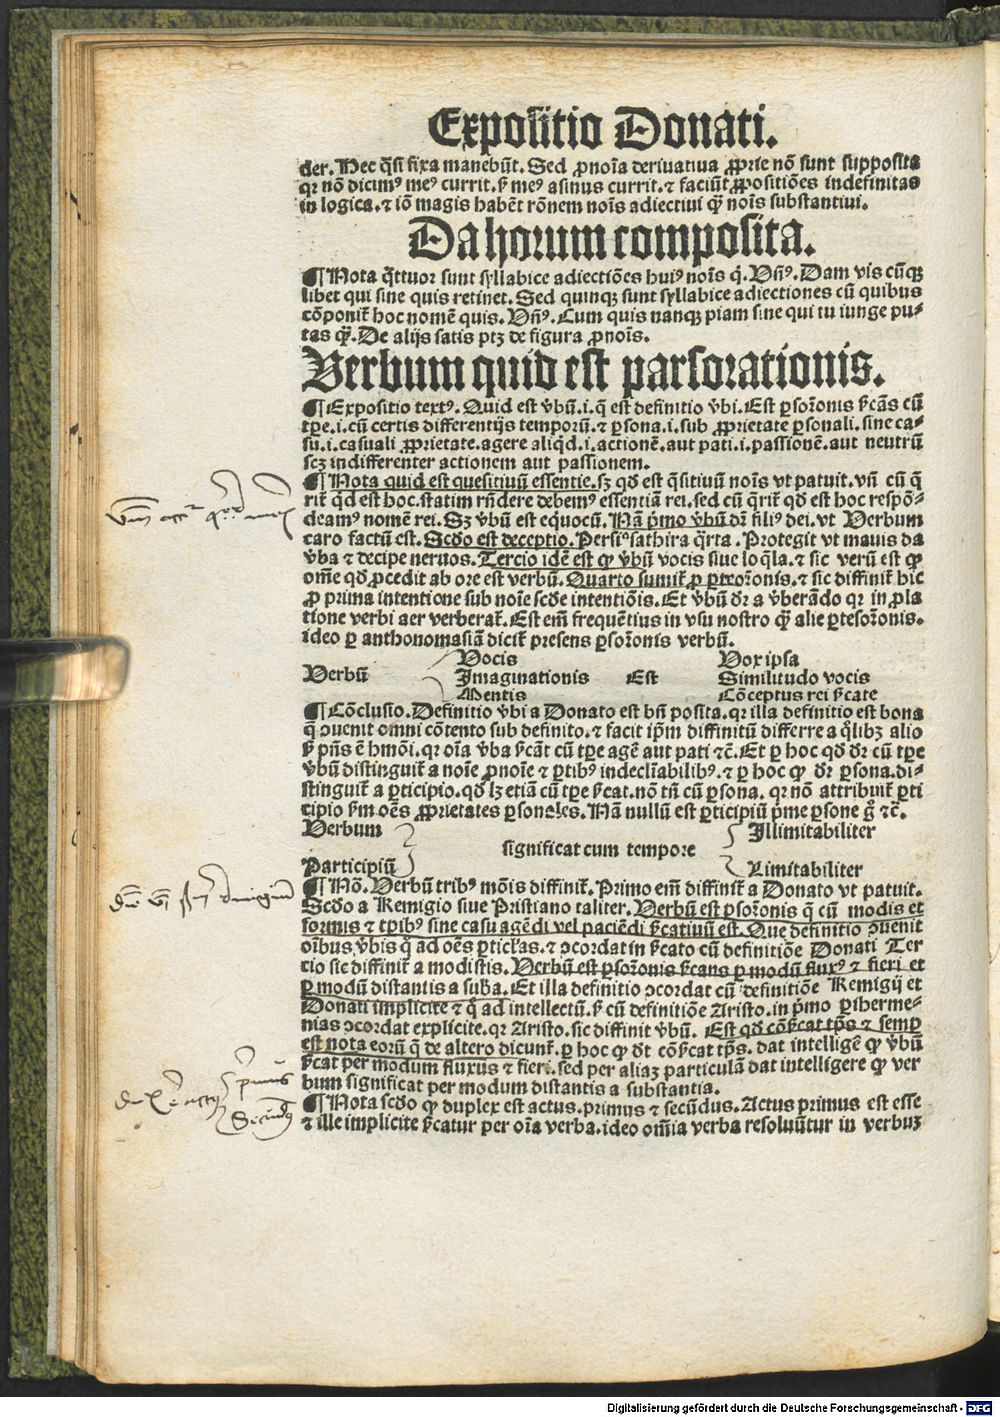 Expositio Donati.
der. Hec q̄si fixa manebūt. Sed ꝓnoīa deriuatiua ꝓprie nō sunt supposita
qꝛ nō dicimꝰ meꝰ currit. ẜ meꝰ asinus currit. ⁊ faciūt ꝓpositiōes indefinitas
in logica. ⁊ iō magis habēt rōnem noīs adiectiui qꝫ̄ noīs substantiui.
Da horum composita.
¶ Nota q̄ttuor sunt syllabice adiectiōes huiꝰ noīs q̄. Vn̄ꝰ. Dam vis cūqꝫ
libet qui sine quis retinet. Sed quinqꝫ sunt syllabice adiectiones cū quibus
cōponit̄ hoc nomē quis. Vn̄ꝰ. Cum quis nanqꝫ piam sine qui tu iunge pu-
tas qꝫ̄. De alijs satis ptꝫ de figura ꝓnoīs.
Verbum quid est parsorationis.
¶ Expositio textꝰ. Quid est v̄bū. i. q̄ est definitio v̄bi. Est ꝑsoꝛ̄onis ẜcās cū
tꝑe. i. cū certis differentijs temporū. ⁊ ꝑsona. i. sub ꝓprietate ꝑsonali. sine ca-
su. i. casuali ꝓprietate. agere aliq̄d. i. actionē. aut pati. i. passionē. aut neutrū
scꝫ indifferenter actionem aut passionem.
¶ Nota quid est quesitiuū essentie. sꝫ qd̄ est q̄sitiuū noīs vt patuit. vn̄ cū q̄
rit̄ q̄d est hoc. statim rn̄dere debemꝰ essentiā rei. sed cū q̄rit̄ qd̄ est hoc respō-
deamꝰ nomē rei. Sꝫ v̄bū est equocū. Nā p̄mo v̄bū dr̄ filiꝰ dei. vt Verbum
caro factū est. Scd̄o est deceptio. Persiꝰ sathira q̄rta. Protegit vt mauis da
v̄ba ⁊ decipe neruos. Tercio idē est qꝫ v̄bū vocis siue loq̄la. ⁊ sic verū est qꝫ
om̄e qd̄ ꝓcedit ab ore est verbū. Quarto sumit̄ ꝓ ꝑteoꝛ̄onis. ⁊ sic diffinit̄ hic
ꝓ prima intentione sub noīe scd̄e intentiōis. Et v̄bū dr̄ a v̄berādo qꝛ in ꝓla
tione verbi aer verberat̄. Est em̄ frequētius in vsu nostro qꝫ̄ alie ꝑtesoꝛ̄onis.
ideo ꝑ anthonomasiā dicit̄ presens ꝑsoꝛ̄onis verbū.
Vocis Vox ipsa
Verbū Imaginationis Est Similitudo vocis
Mentis Cōceptus rei ẜcate
¶ Cōclusio. Definitio v̄bi a Donato est bn̄ posita. qꝛ illa definitio est bona
q̄ ꝯuenit omni cōtento sub definito. ⁊ facit ip̄m diffinitū differre a q̄libꝫ alio
ẜ pn̄s ē hmōi. qꝛ oīa v̄ba ẜcāt cū tꝑe agē aut pati ⁊c̄. Et ꝑ hoc qd̄ dr̄ cū tꝑe
v̄bū distinguit̄ a noīe ꝓnoīe ⁊ ꝑtibꝰ indeclīabilibꝰ. ⁊ ꝑ hoc qꝫ dr̄ ꝑsona. di-
stinguit̄ a ꝑticipio. qd̄ lꝫ etiā cū tꝑe ẜcat. nō tn̄ cū ꝑsona. qꝛ nō attribuit̄ ꝑti
cipio ẜm oēs ꝓprietates ꝑsonales. Nā nullū est ꝑticipiū p̄me ꝑsone g̊ ⁊c̄.
Verbum Illimitabiliter
significat cum tempore
Participiū Limitabiliter
¶ Nō. Verbū tribꝰ mōis diffinit̄. Primo em̄ diffinit̄ a Donato vt patuit.
Scd̄o a Remigio siue Pristiano taliter. Verbū est ꝑsoꝛ̄onis q̄ cū modis et
formis ⁊ tꝑibꝰ sine casu agēdi vel paciēdi ẜcatiuū est. Que definitio ꝯuenit
oībus v̄bis q̄ ad oēs ꝑticl̄as. ⁊ ꝯcordat in ẜcato cū definitiōe Donati Ter
cio sic diffinit̄ a modistis. Verbū est ꝑsoꝛ̄onis ẜcans ꝑ modū fluxꝰ ⁊ fieri et
ꝑ modū distantis a suba. Et illa definitio ꝯcordat cū definitiōe Remigij et
Donati implicite ⁊ q̄ ad intellectū. ẜ cū definitiōe Aristo. in p̄mo ꝑiherme-
nias ꝯcordat explicite. qꝛ Aristo. sic diffinit v̄bū. Est qd̄ cōẜcat tp̄s ⁊ semꝑ
est nota eorū q̄ de altero dicunt̄. ꝑ hoc qꝫ dt̄ cōẜcat tp̄s. dat intelligē qꝫ v̄bū
ẜcat per modum fluxus ⁊ fieri. sed per aliaꝫ particulā dat intelligere qꝫ ver
bum significat per modum distantis a substantia.
¶ Nota scd̄o qꝫ duplex est actus. primus ⁊ secūdus. Actus primus est esse
⁊ ille implicite ẜcatur per oīa verba. ideo om̄ia verba resoluūtur in verbuꝫ
primus
Secundꝰ
Digitalisierung gefördert durch die Deutsche Forschungsgemeinschaft - DFG